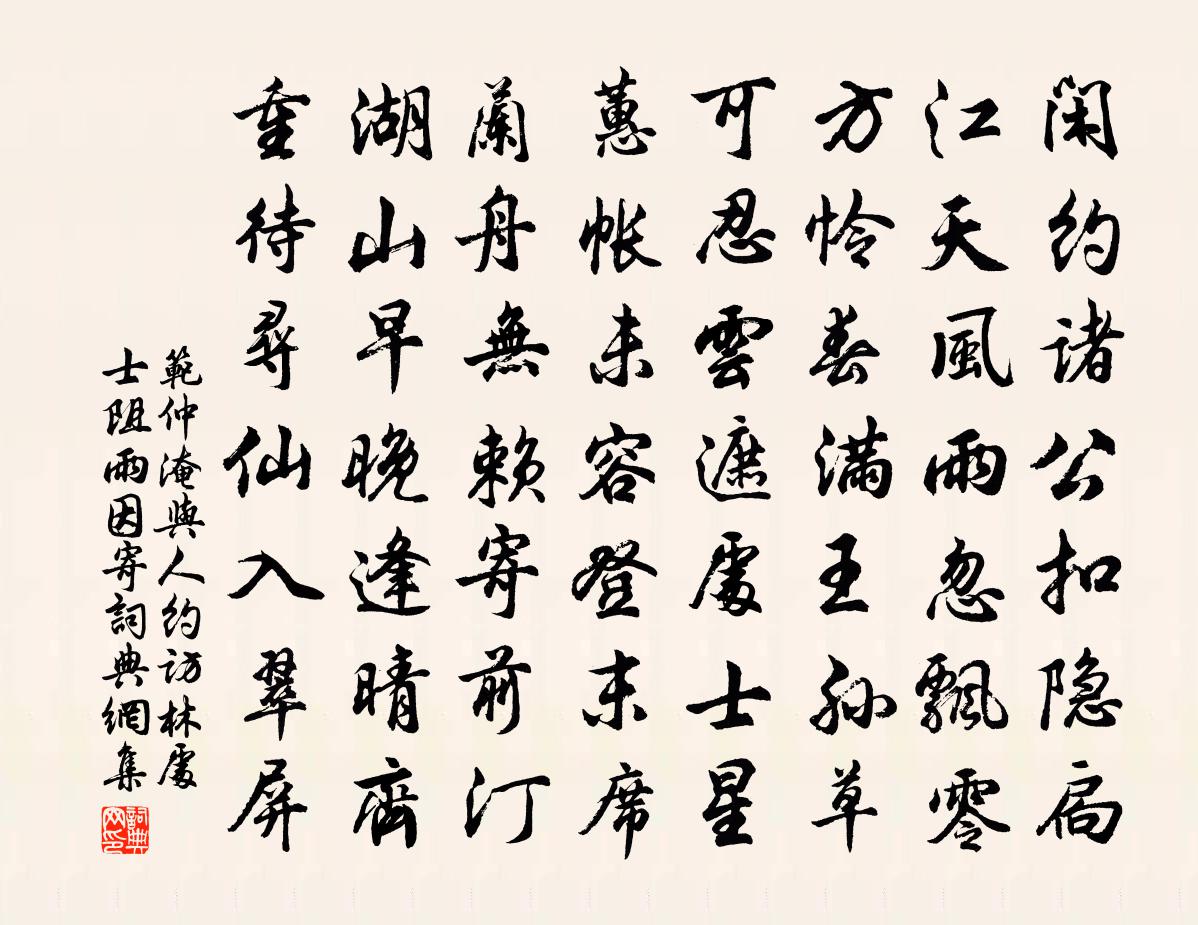 閑約諸公扣隐扃
江天風雨忽飄零
方怜春滿王孙草
可忍雲遮處士星
蕙帐未容登末席
蘭舟無赖寄前汀
湖山早晚逢晴霽
重待尋仙入翠屏
範仲淹與人約訪林處
士阻雨因寄詞典網集
詞典
网印